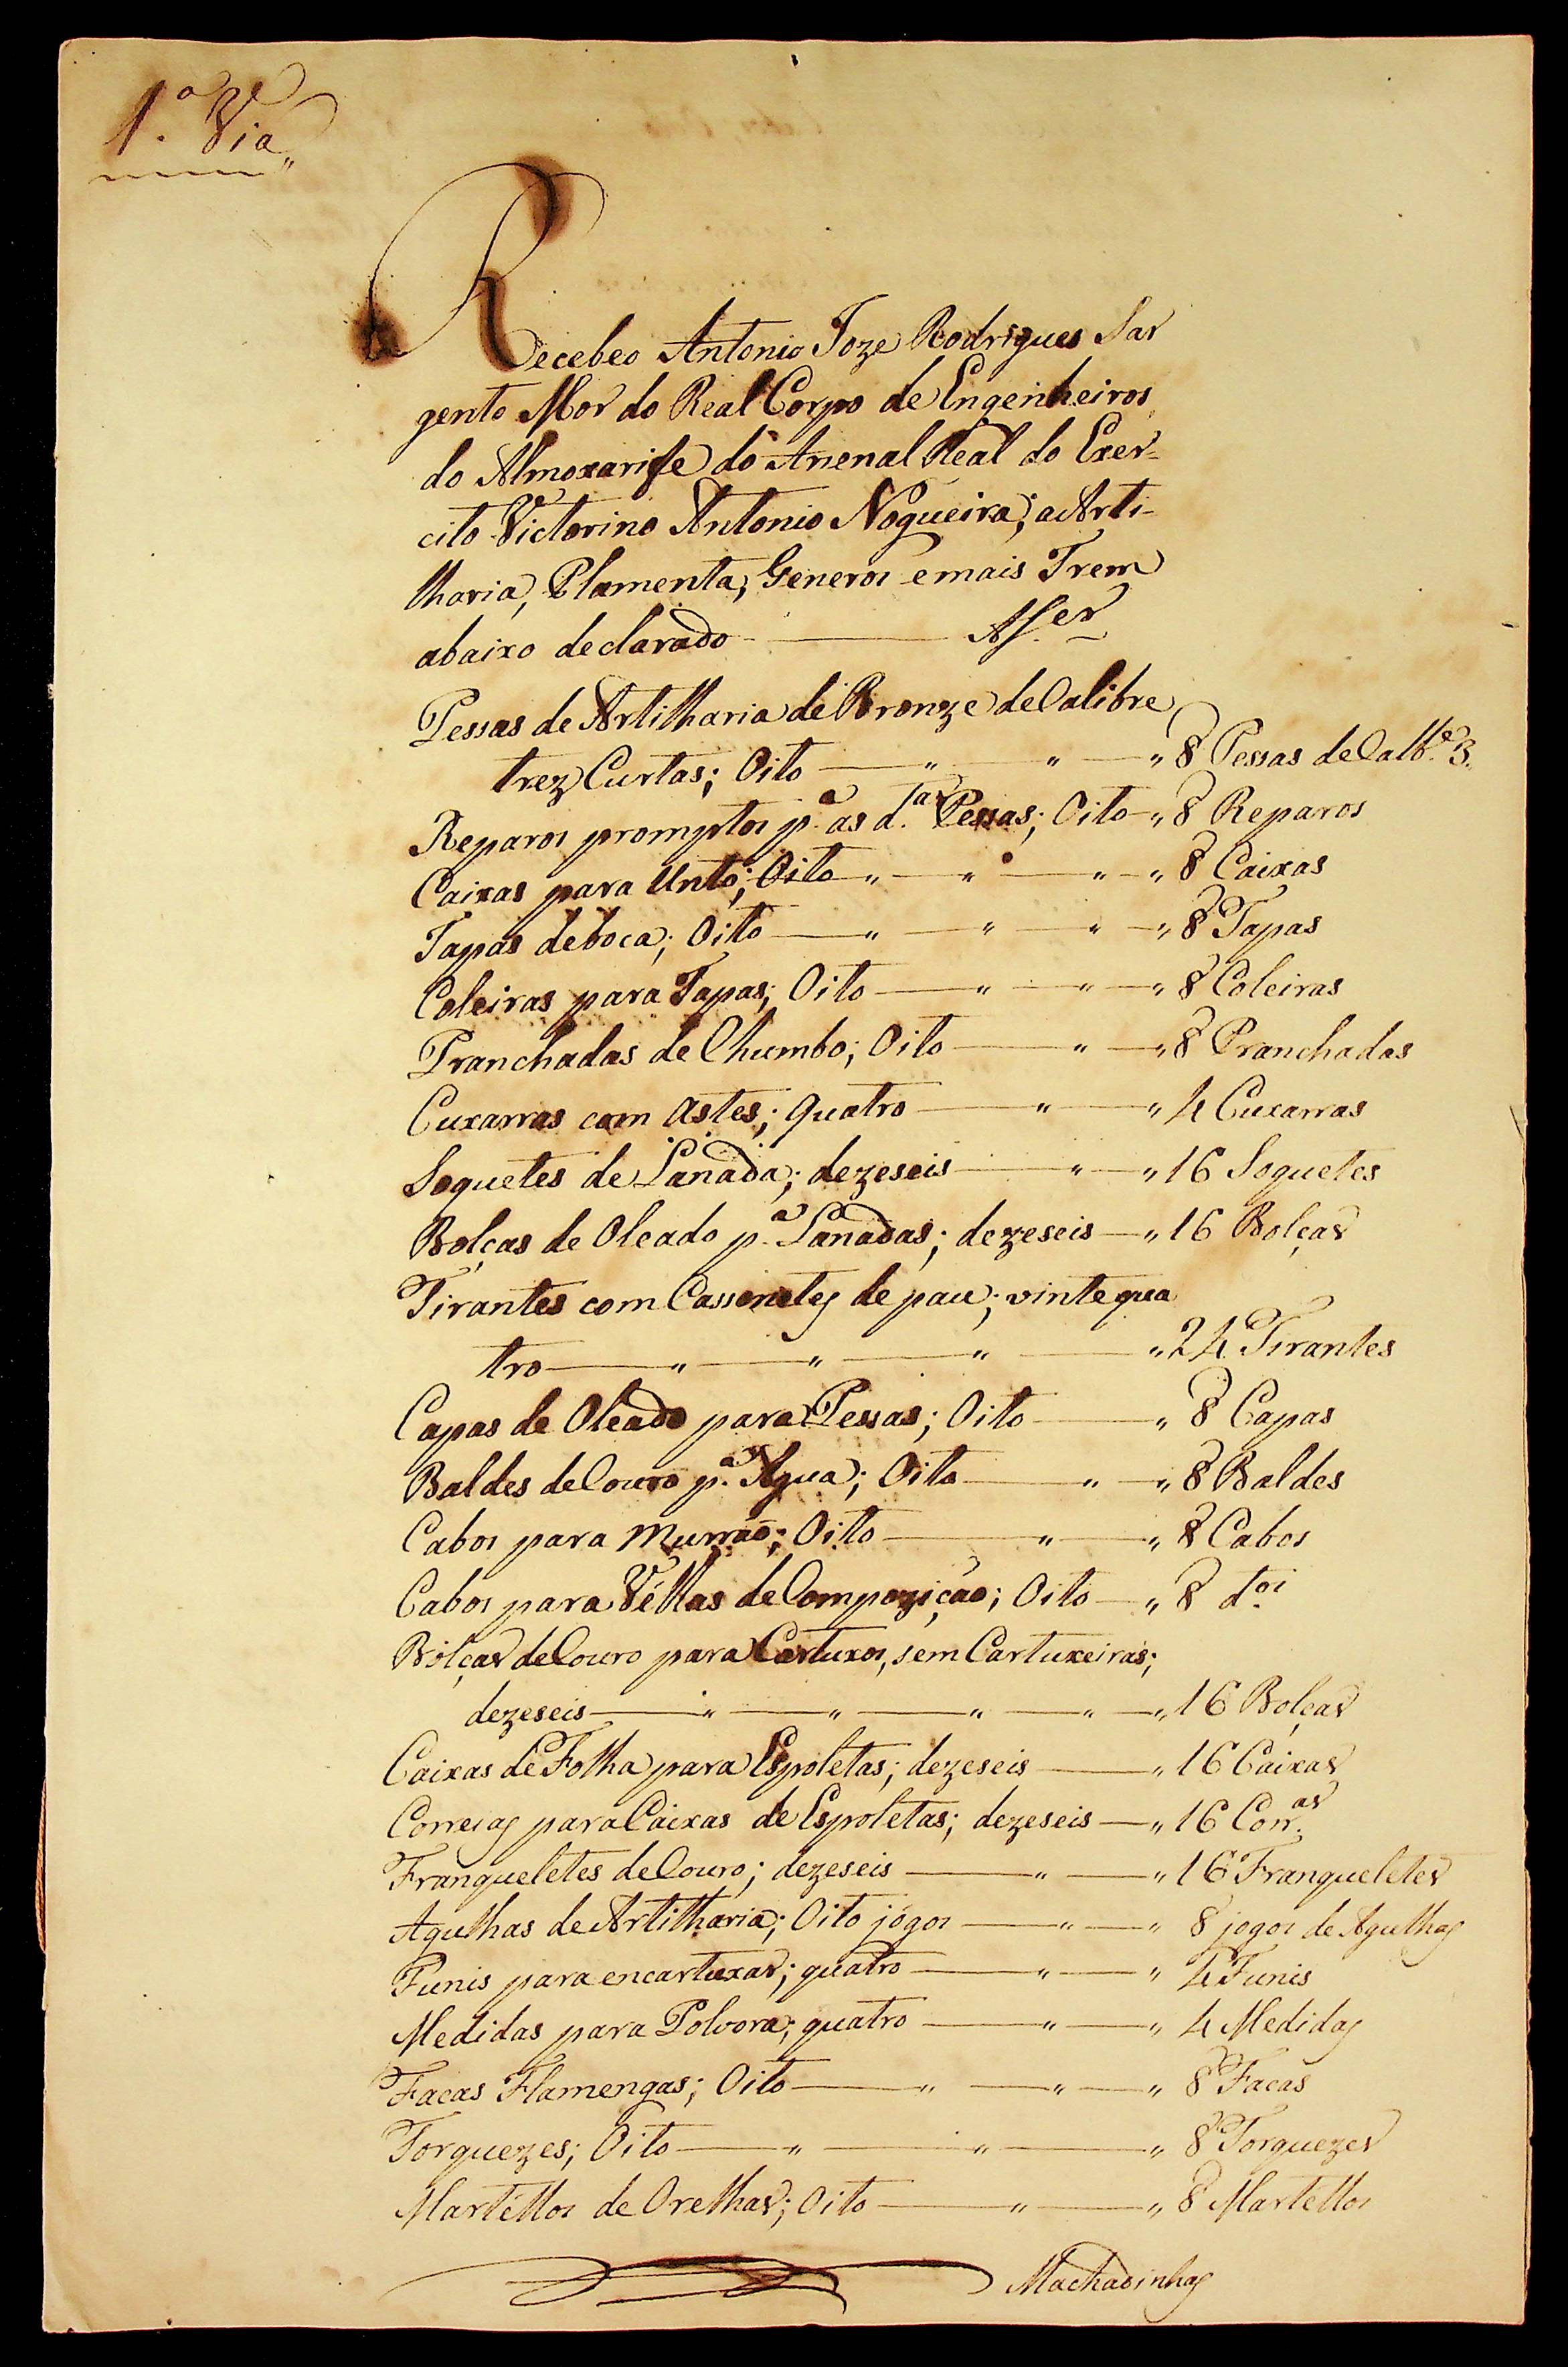 1.ª Via
Recebeo Antonio Joze Rodrigues Sar
gento Mor do Real Corpo de Engenheiros
do Almoxarife do Arsenal Real do Exer-
cito Victorino Antonio Nogueira; a Arti-
lharia, Plamenta, Generos e mais Trem
abaixo declarado — A S.er
Pessas de Artilharia de Bronze de Calibre
trez Curtas; Oito — " — " — " 8 Pessas de Calb.e 3.
Reparos promptos p.a as d.tas Pessas; Oito — " 8 Reparos
Caixas para Unto; Oito " — " — " — " 8 Caixas
Tapas de boca; Oito — " — " — " — " 8 Tapas
Coleiras para Tapas; Oito — " — " — " 8 Coleiras
Pranchadas de Chumbo; Oito — " — " 8 Pranchadas
Cuxarras com astes; quatro — " — " 4 Cuxarras
Soquetes de Lanada; dezeseis — " — " 16 Soquetes
Bolças de Oleado p.a Lanadas; dezeseis — " 16 Bolças
Tirantes com Cassonetes de pau; vinte qua
tro — " — " — " — " 24 Tirantes
Capas de Oleado para Pessas; Oito — " 8 Capas
Baldes de Couro p.a Agua; Oito — " — " 8 Baldes
Cabos para Murrão; Oito — " — " 8 Cabos
Cabos para Véllas de Compozição; Oito — " 8 d.tos
Bolças de Couro para Cartuxos, sem Cartuxeiras;
dezeseis — " — " — " — " — " 16 Bolças
Caixas de Folha para Espoletas; dezeseis — " 16 Caixas
Correias para Caixas de Espoletas; dezeseis — " 16 Corr.as
Franqueletes de Couro; dezeseis — " — " 16 Franqueletes
Agulhas de Artilharia; Oito jógos — " — " 8 jogos de Agulhas
Funis para encartuxar; quatro — " — " 4 Funis
Medidas para Polvora; quatro — " — " 4 Medidas
Facas Flamengas; Oito — " — " — " 8 Facas
Torquezes; Oito — " — " — " 8 Torquezes
Martéllos de Orelhas; Oito — " — " 8 Martéllos
Machadinhas